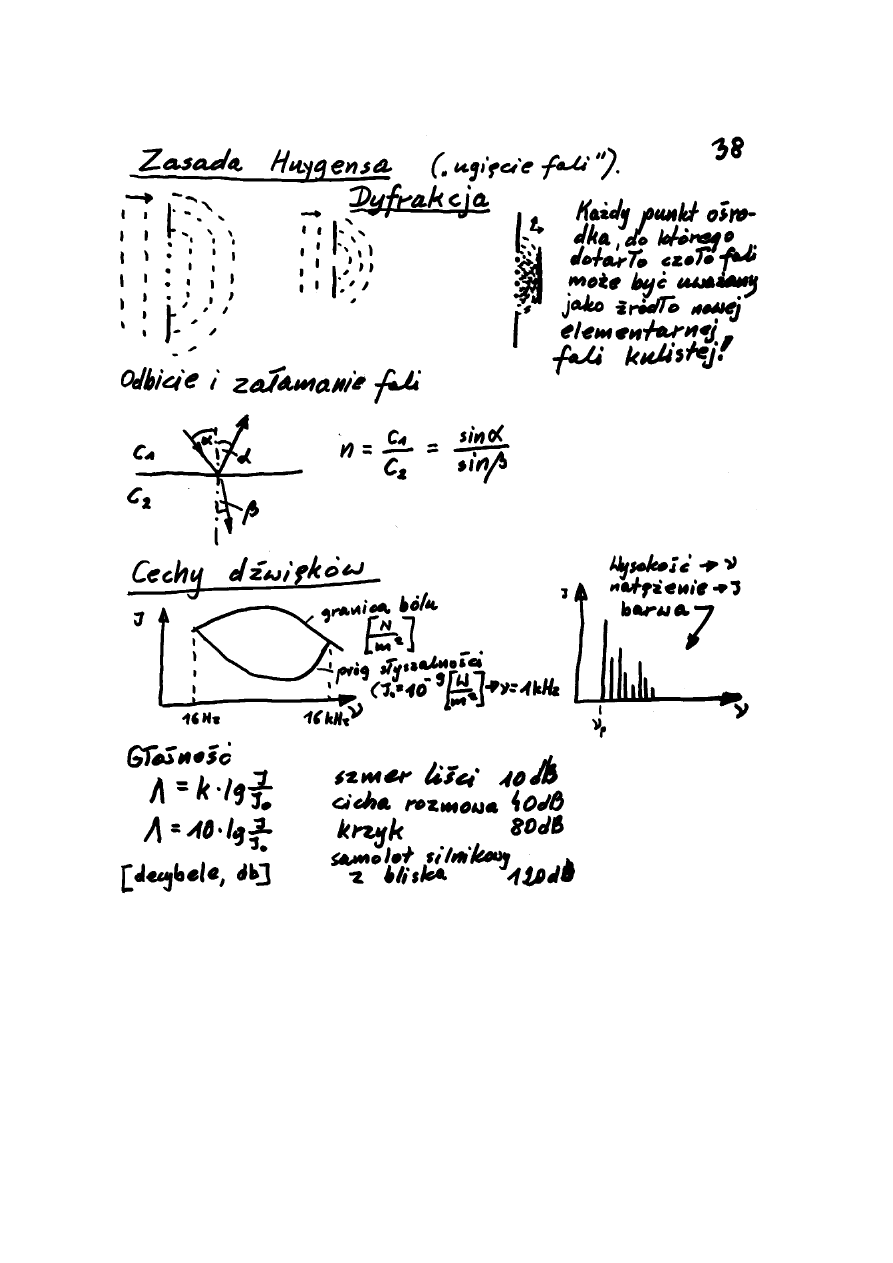 38
Zasada Huygensa („ugięcie fali").
Dyfrakcja
Każdy punkt ośro-
dka, do którego
dotarło czoło fali
może być uważany
jako źródło nowej
elementarnej
fali kulistej!
Odbicie i załamanie fali
α
α
C1
C2
β
n = C1/C2 = sinα/sinβ
Cechy dźwięków
J
granica bólu
[N/m²]
próg słyszalności
(J₀=10⁻⁹[W/m²]→ν=1kHz
16Hz
16kHz
ν
Wysokość → ν
natężenie → J
barwa
J
ν₁
ν
Głośność
Λ = k·lg J/J₀
Λ = 10·lg J/J₀
[decybele, db]
szmer liści 10dB
cicha rozmowa 40dB
krzyk 80dB
samolot silnikowy
z bliska 120dB